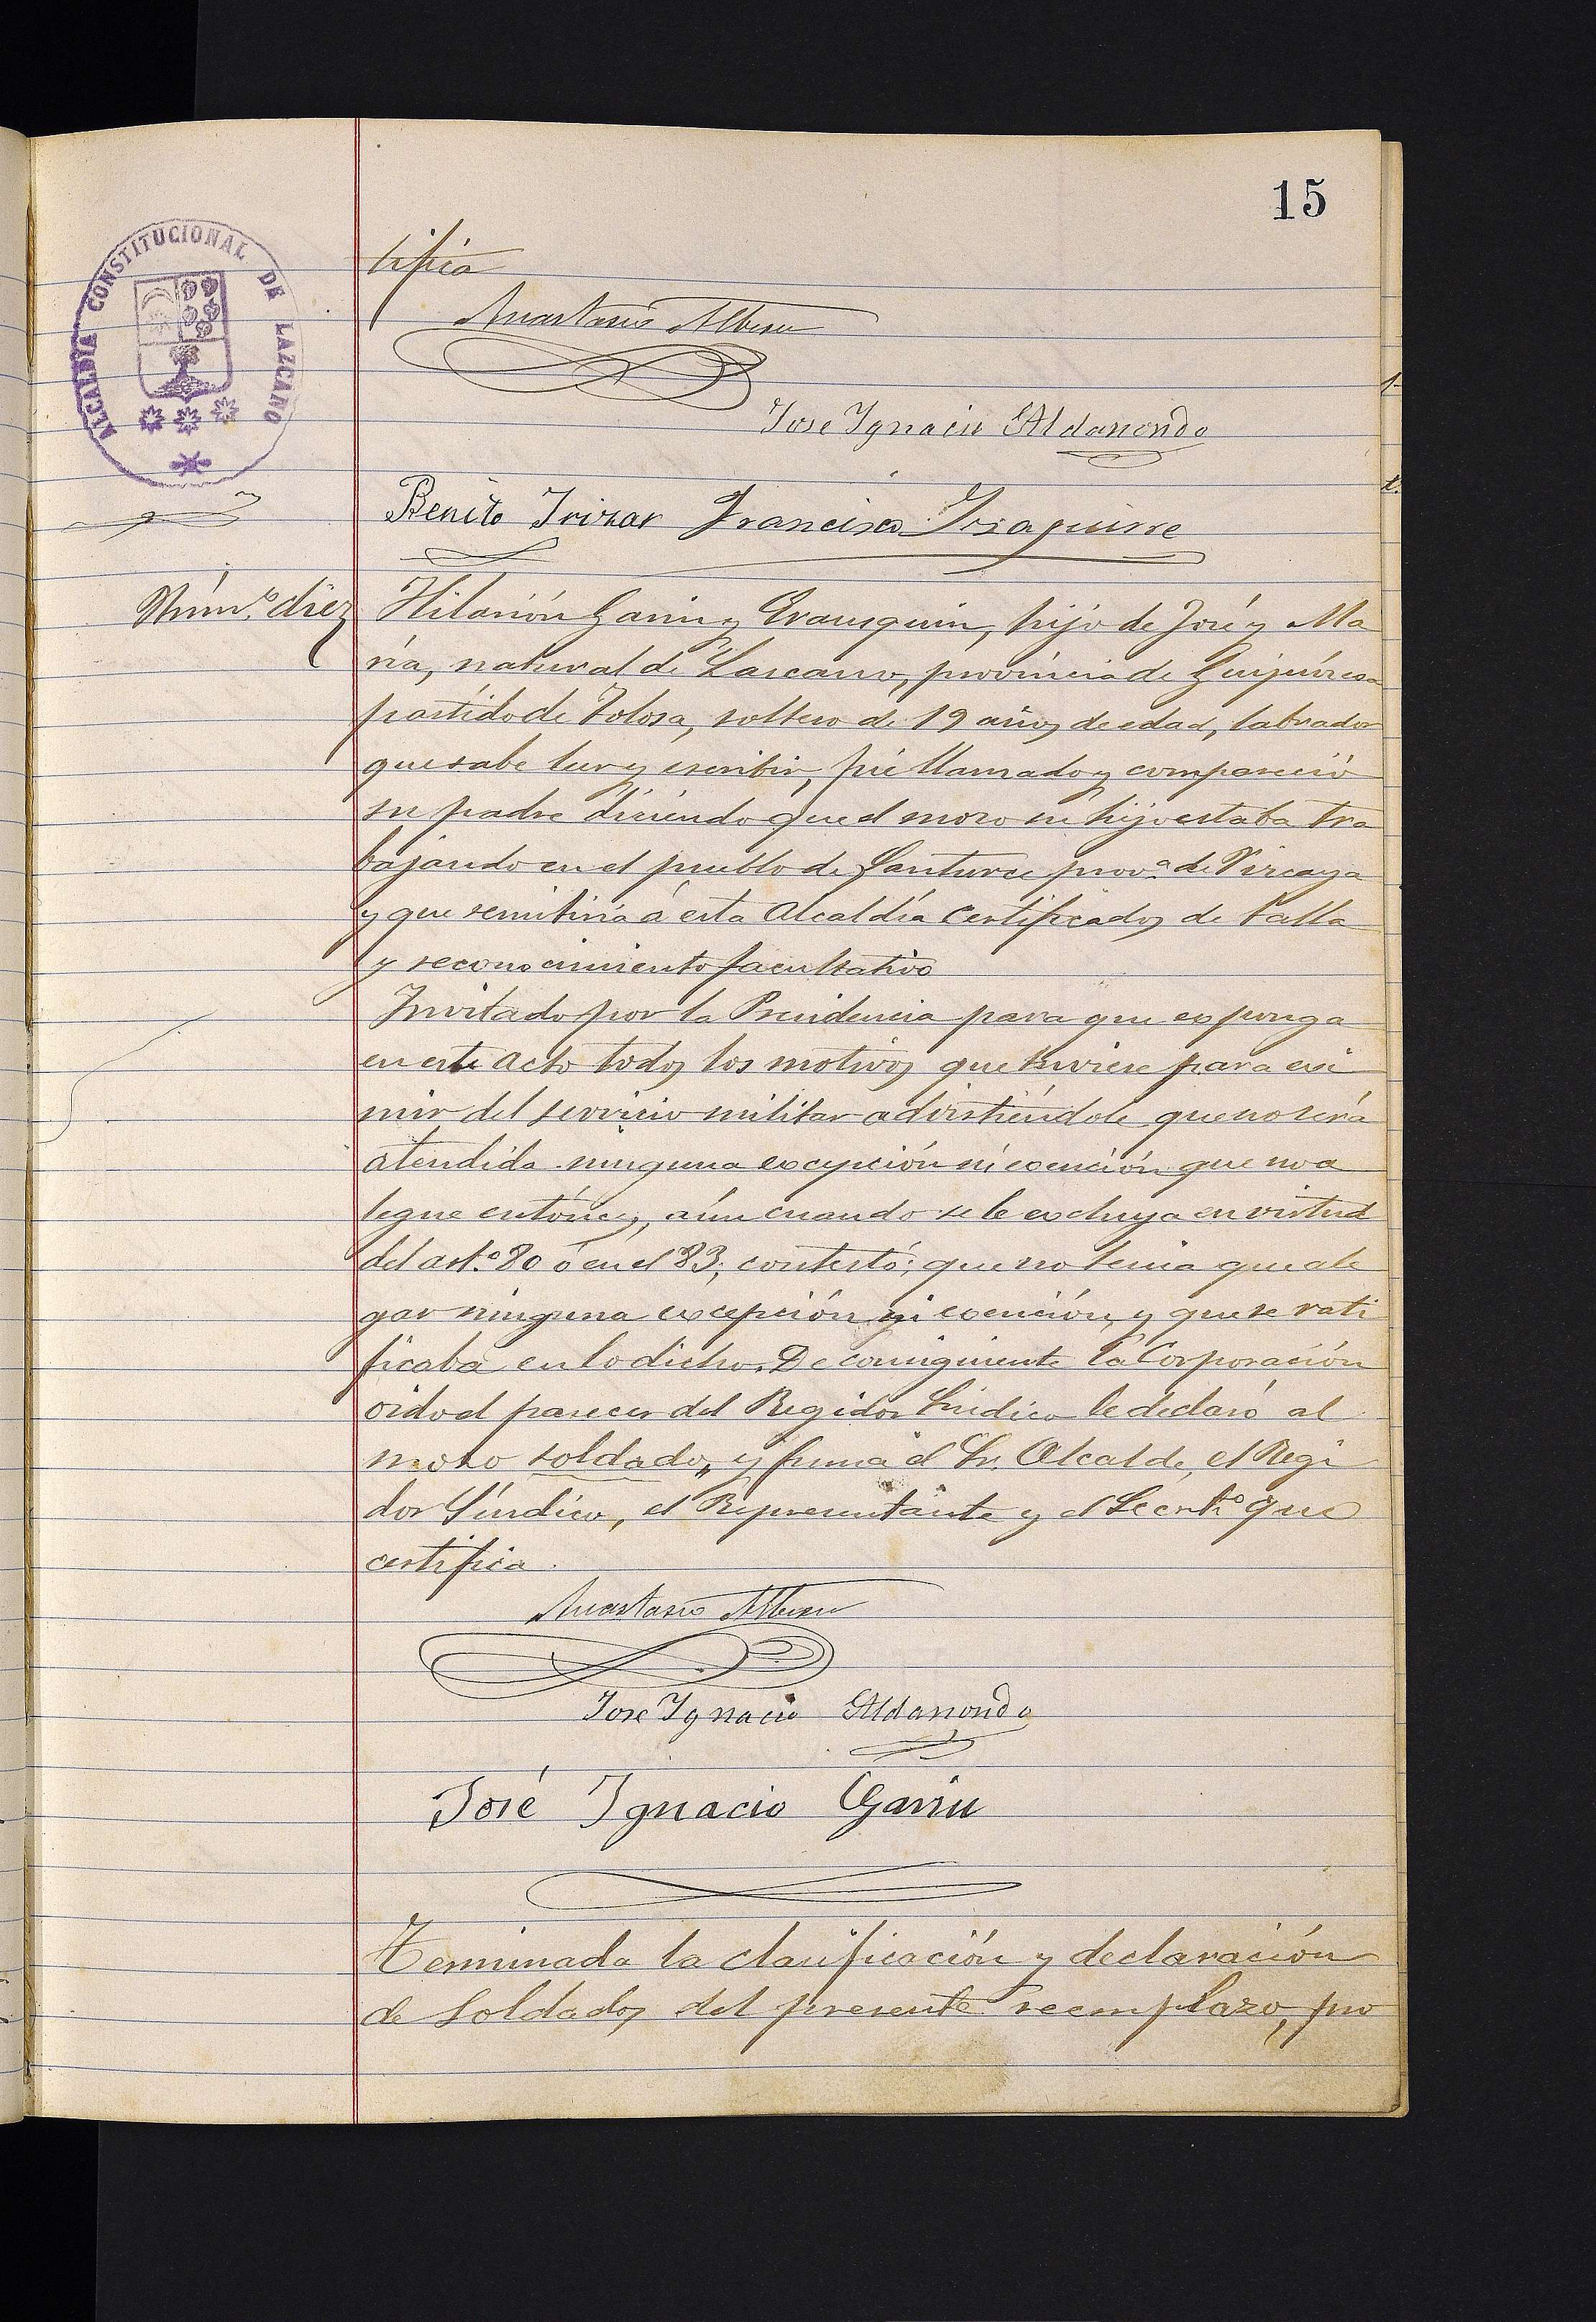 15
ALCALDIA CONSTITUCIONAL DE LAZCANO
tifica
Anastasio Albisu
Jose Ignacio Aldasoro
Benito Irizar Francisco Izaguirre
Núm.º diez
Hilarión Garin y Erausquin, hijo de José y Ma
ría, natural de Lazcano, provincia de Guipúzcoa
partido de Tolosa, soltero de 19 años de edad, labrador
que sabe leer y escribir, fué llamado y compareció
su padre diciendo que el mozo su hijo estaba tra
bajando en el pueblo de Santurce prov.ª de Vizcaya
y que remitiría á esta Alcaldía Certificados de talla
y reconocimiento facultativo
Invitado por la Presidencia para que exponga
en este acto todos los motivos que tuviese para exi
mir del servicio militar advirtiéndole que no será
atendida ninguna excepción ni exención que no a
legue entónces, aún cuando se le excluya en virtud
del art.º 80 ó en el 83; contestó; que no tenia que ale
gar ninguna excepción ni exención, y que se rati
ficaba en lo dicho. De consiguiente la Corporación
oido el parecer del Regidor Sindico le declaró al
mozo soldado, y firma el Sr. Alcalde, el Regi
dor Síndico, el Representante y el Secretº que
certifica.
Anastasio Albisu
Jose Ignacio
José Ignacio Garin
Terminada la clasificación y declaración
de Soldados del presente reemplazo, pro